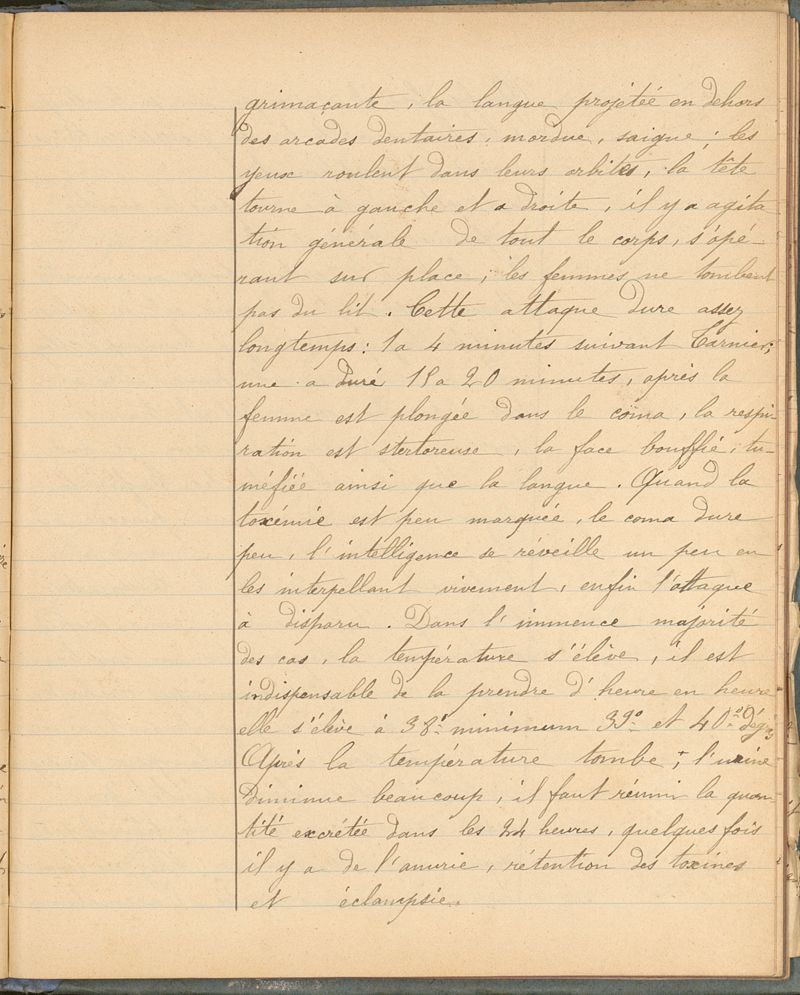 grimaçante, la langue projetée en dehors
des arcades dentaires, mordue, saigne ; les
yeux roulent dans leurs orbites, la tête
tourne à gauche et a droite, il y a agita
tion générale de tout le corps, s'opé-
rant sur place ; les femmes ne tombent
pas du lit. Cette attaque dure assez
longtemps : 1 a 4 minutes suivant Tarnier ;
une a duré 15 a 20 minutes, après la
femme est plongée dans le coma, la respi-
ration est stertoreuse, la face bouffie, tu-
méfiée ainsi que la langue. Quand la
toxémie est peu marquée, le coma dure
peu, l'intelligence se réveille un peu en
les interpellant vivement, enfin l'attaque
à disparu. Dans l'immence majorité
des cas, la température s'élève, il est
indispensable de la prendre d'heure en heure
elle s'élève à 38° minimum 39° et 40°
Après la température tombe ; l'urine
diminue beaucoup, il faut réunir la quan-
tité excrétée dans les 24 heures, quelques fois
il y a de l'anurie, rétention des toxines
et éclampsie.